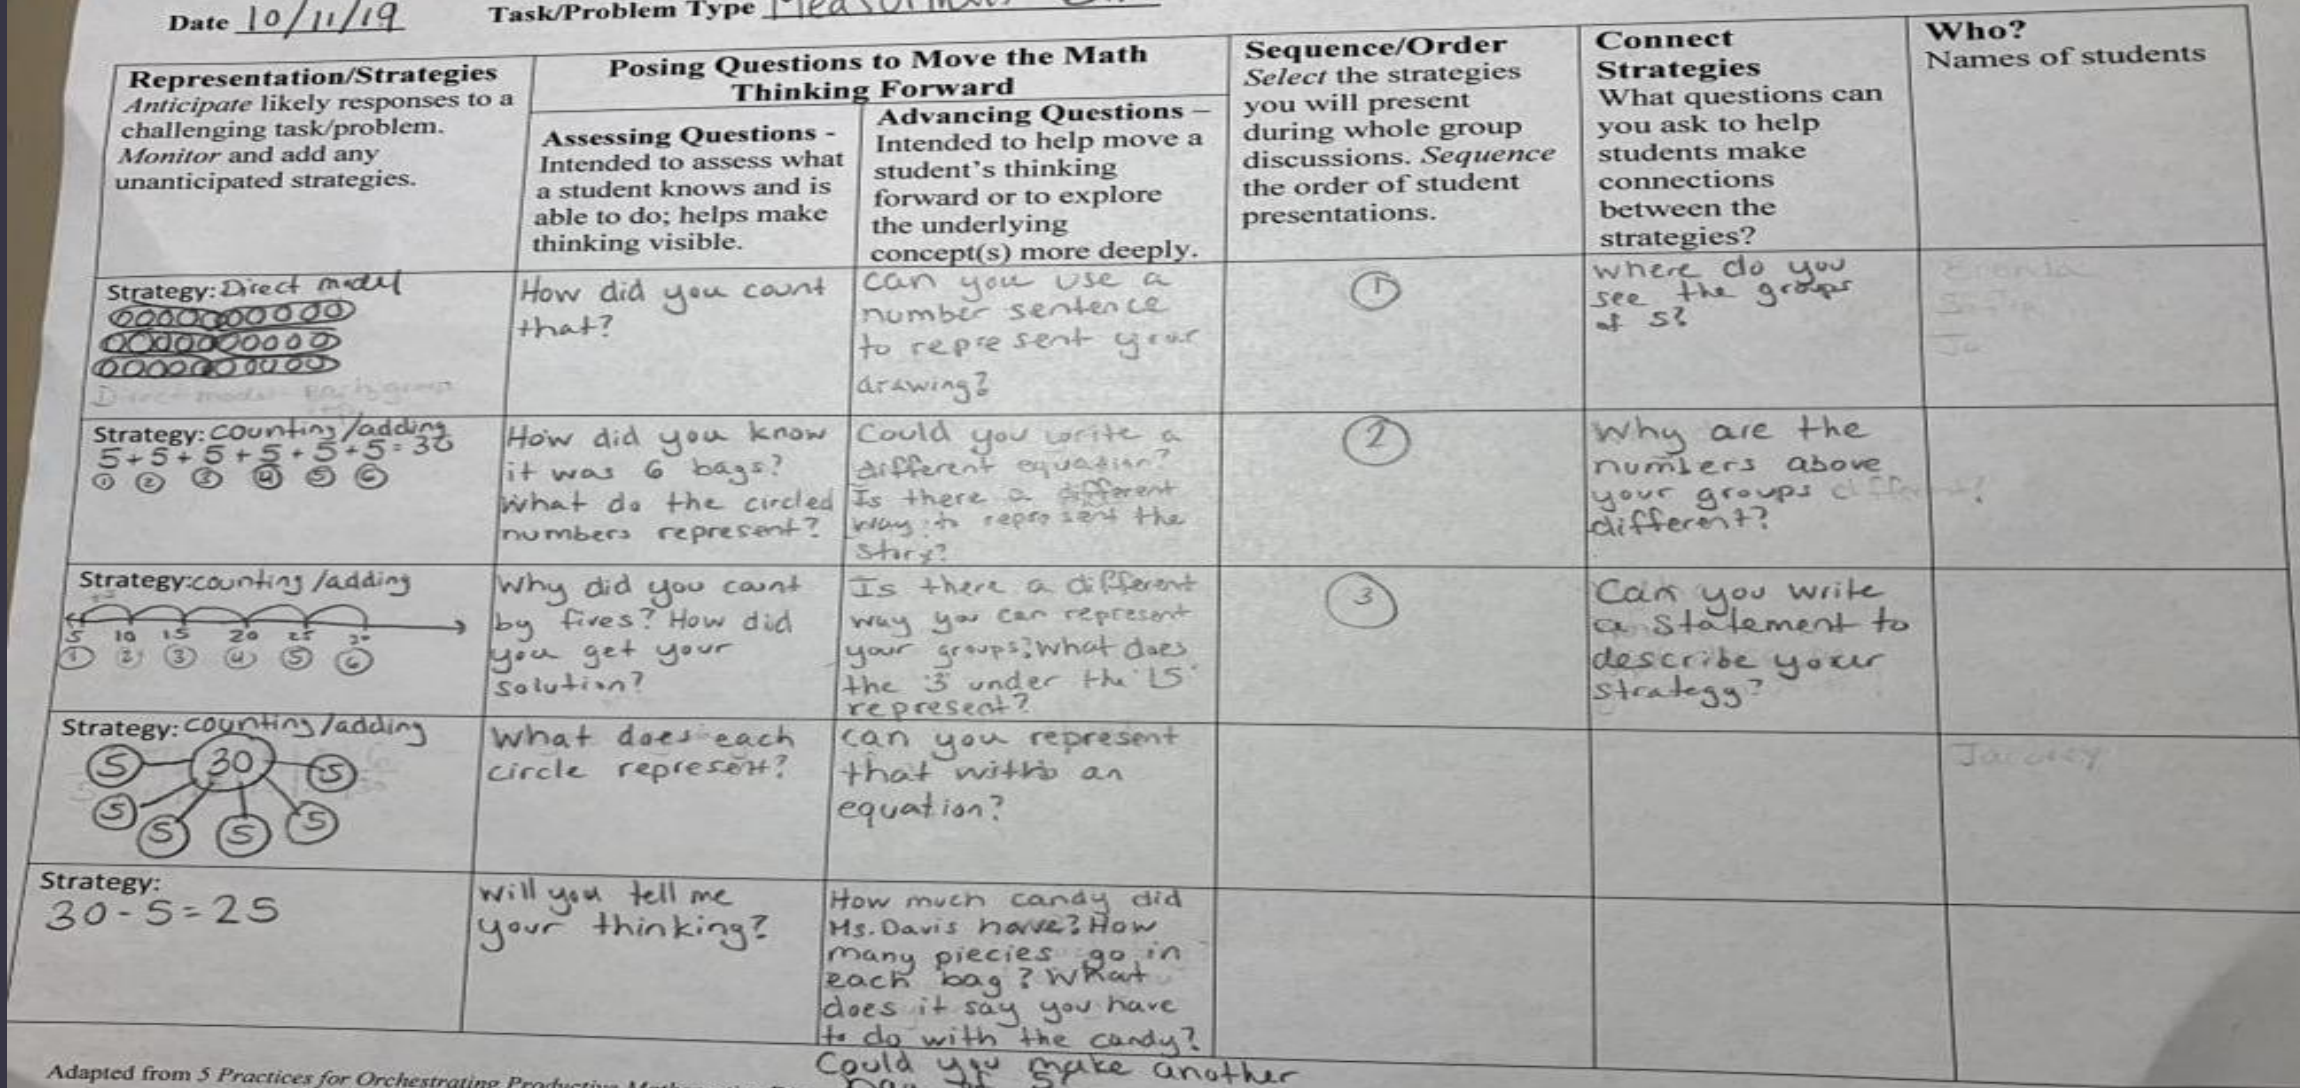 Date 10/11/19 Task/Problem Type
Representation/Strategies
Anticipate likely responses to a
challenging task/problem.
Monitor and add any
unanticipated strategies.
Posing Questions to Move the Math
Thinking Forward
Assessing Questions -
Intended to assess what
a student knows and is
able to do; helps make
thinking visible.
Advancing Questions –
Intended to help move a
student's thinking
forward or to explore
the underlying
concept(s) more deeply.
Sequence/Order
Select the strategies
you will present
during whole group
discussions. Sequence
the order of student
presentations.
Connect
Strategies
What questions can
you ask to help
students make
connections
between the
strategies?
Who?
Names of students
Strategy: Direct model
How did you count
that?
Can you use a
number sentence
to represent your
drawing?
1
where do you
see the groups
of 5?
Strategy: counting/adding
5+5+5+5+5+5=30
1 2 3 4 5 6
How did you know
it was 6 bags?
What do the circled
numbers represent?
Could you write a
different equation?
Is there a different
way to represent the
story?
2
Why are the
numbers above
your groups
different?
Strategy: counting/adding
5 10 15 20 25 30
1 2 3 4 5 6
Why did you count
by fives? How did
you get your
solution?
Is there a different
way you can represent
your groups? What does
the 3 under the 15
represent?
3
Can you write
a statement to
describe your
strategy?
Strategy: counting/adding
5 30 5
5 5 5 5
What does each
circle represent?
Can you represent
that with an
equation?
Strategy:
30-5=25
Will you tell me
your thinking?
How much candy did
Ms. Davis have? How
many piecies go in
each bag? What
does it say you have
to do with the candy?
Could you make another
Adapted from 5 Practices for Orchestrating